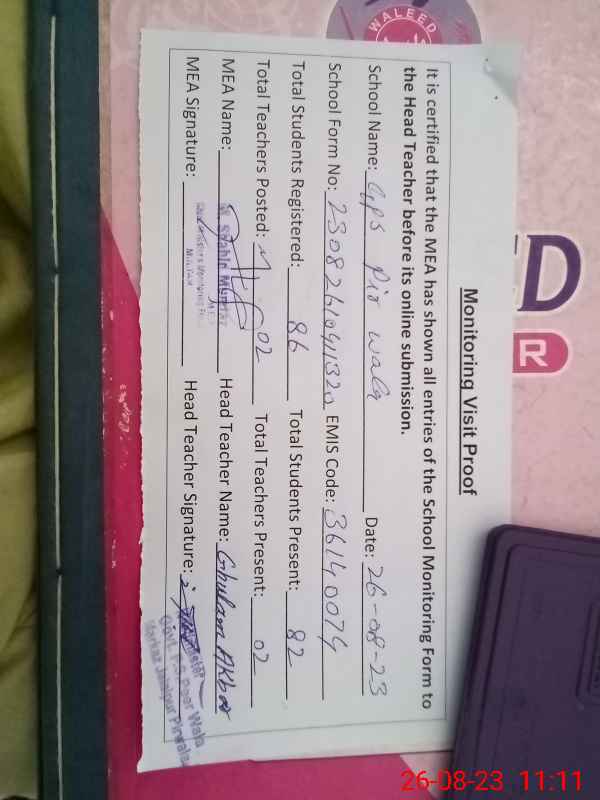 WALEED
ED
R
Monitoring Visit Proof
It is certified that the MEA has shown all entries of the School Monitoring Form to
the Head Teacher before its online submission.
School Name: GPS Pir wala Date: 26-08-23
School Form No: EMIS Code: 36140074
Total Students Registered: 86 Total Students Present: 82
Total Teachers Posted: 02 Total Teachers Present: 02
MEA Name: Head Teacher Name: Ghulam Akbar
MEA Signature: Head Teacher Signature:
Govt. P.S Peer Wala
Markaz Jalalpur Pirwala
26-08-23 11:11